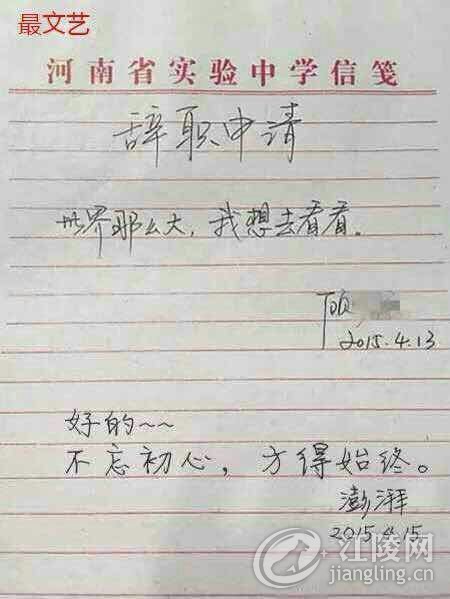 最文艺
河南省实验中学信笺
辞职申请
世界那么大，我想去看看。
顾
2015.4.13
好的~~
不忘初心，方得始终。
澎湃
2015.4.15
江陵网
jiangling.cn